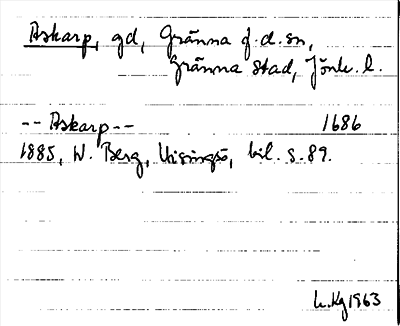 Askarp, gd, Gränna f.d. sn,
Gränna stad, Jönk. l.
-- Askarp -- 1686
1885, W. Berg, Visingsö, bil. s. 89.
L.Kg 1963